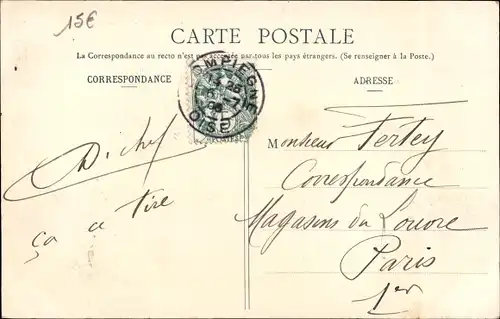 15€
CARTE POSTALE
La Correspondance au recto n'est pas acceptée par tous les pays étrangers. (Se renseigner à la Poste.)
CORRESPONDANCE
ADRESSE
COMPIEGNE
OISE
Monsieur Fertey
Correspondance
Magasins du Louvre
Paris
1er
ça a tire